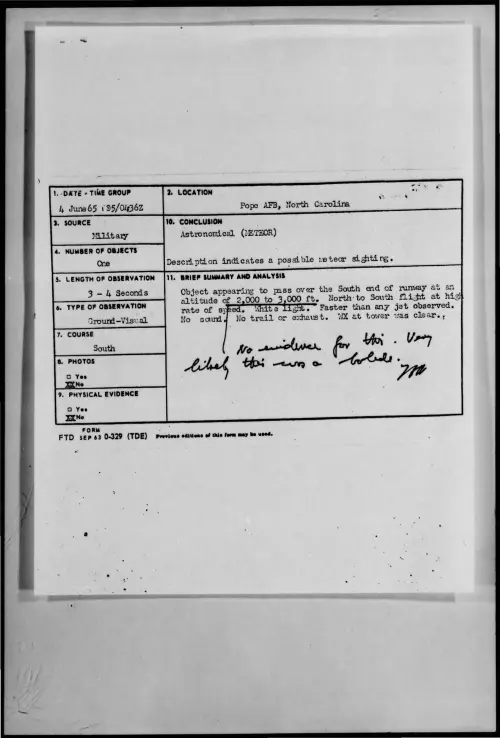 1. DATE - TIME GROUP
4 June 65 05/0436Z
2. LOCATION
Pope AFB, North Carolina
3. SOURCE
Military
10. CONCLUSION
Astronomical (METEOR)
Description indicates a possible meteor sighting.
4. NUMBER OF OBJECTS
One
5. LENGTH OF OBSERVATION
3 - 4 Seconds
11. BRIEF SUMMARY AND ANALYSIS
Object appearing to pass over the South end of runway at an
altitude of 2,000 to 3,000 ft. North to South flight at high
rate of speed. White light. Faster than any jet observed.
No sound. No trail or exhaust. WX at tower was clear.
No evidence for this. Very
likely this was a bolide.
6. TYPE OF OBSERVATION
Ground-Visual
7. COURSE
South
8. PHOTOS
□ Yes
XX No
9. PHYSICAL EVIDENCE
□ Yes
XX No
FORM
FTD SEP 63 0-329 (TDE) Previous editions of this form may be used.